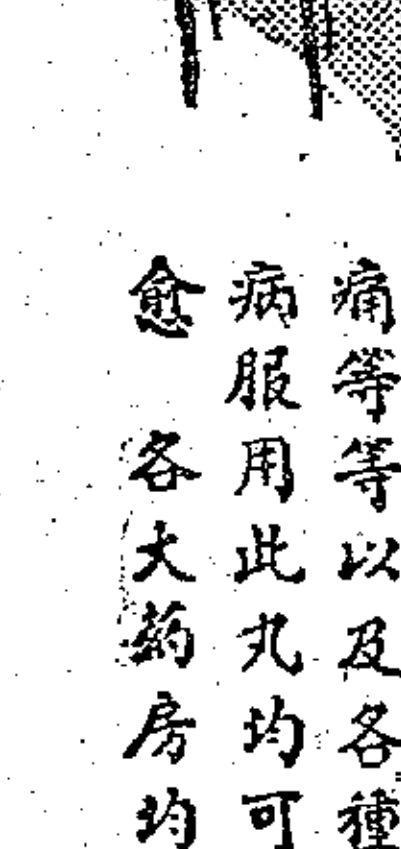 痛等等以及各種
病服用此丸均可
愈　各大药房均